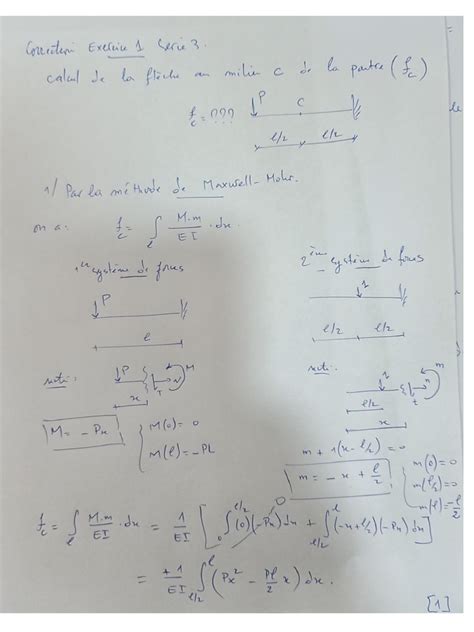 Correction Exercice 1 Serie 3.
calcul de la flèche au milieu C de la poutre (f_c)
f_c = ???
P
C
l/2 l/2
1/ Par la méthode de Maxwell-Mohr.
on a: f_c = ∫_l M.m/EI . dx
1er système de forces
2ème système de forces
P
1
l
l/2 l/2
P
M
N
T
x
1
m
n
t
l/2
x
M = - Px
M(0) = 0
M(l) = -PL
m + 1(x - l/2) = 0
m = - x + l/2
m(0) = 0
m(l/2) = 0
m(l) = -l/2
f_c = ∫_l M.m/EI . dx = 1/EI [ ∫_0^{l/2} (0)(-Px) dx + ∫_{l/2}^l (-x+l/2)(-Px) dx ]
0
= +1/EI ∫_{l/2}^l (Px² - Pl/2 x) dx.
[1]